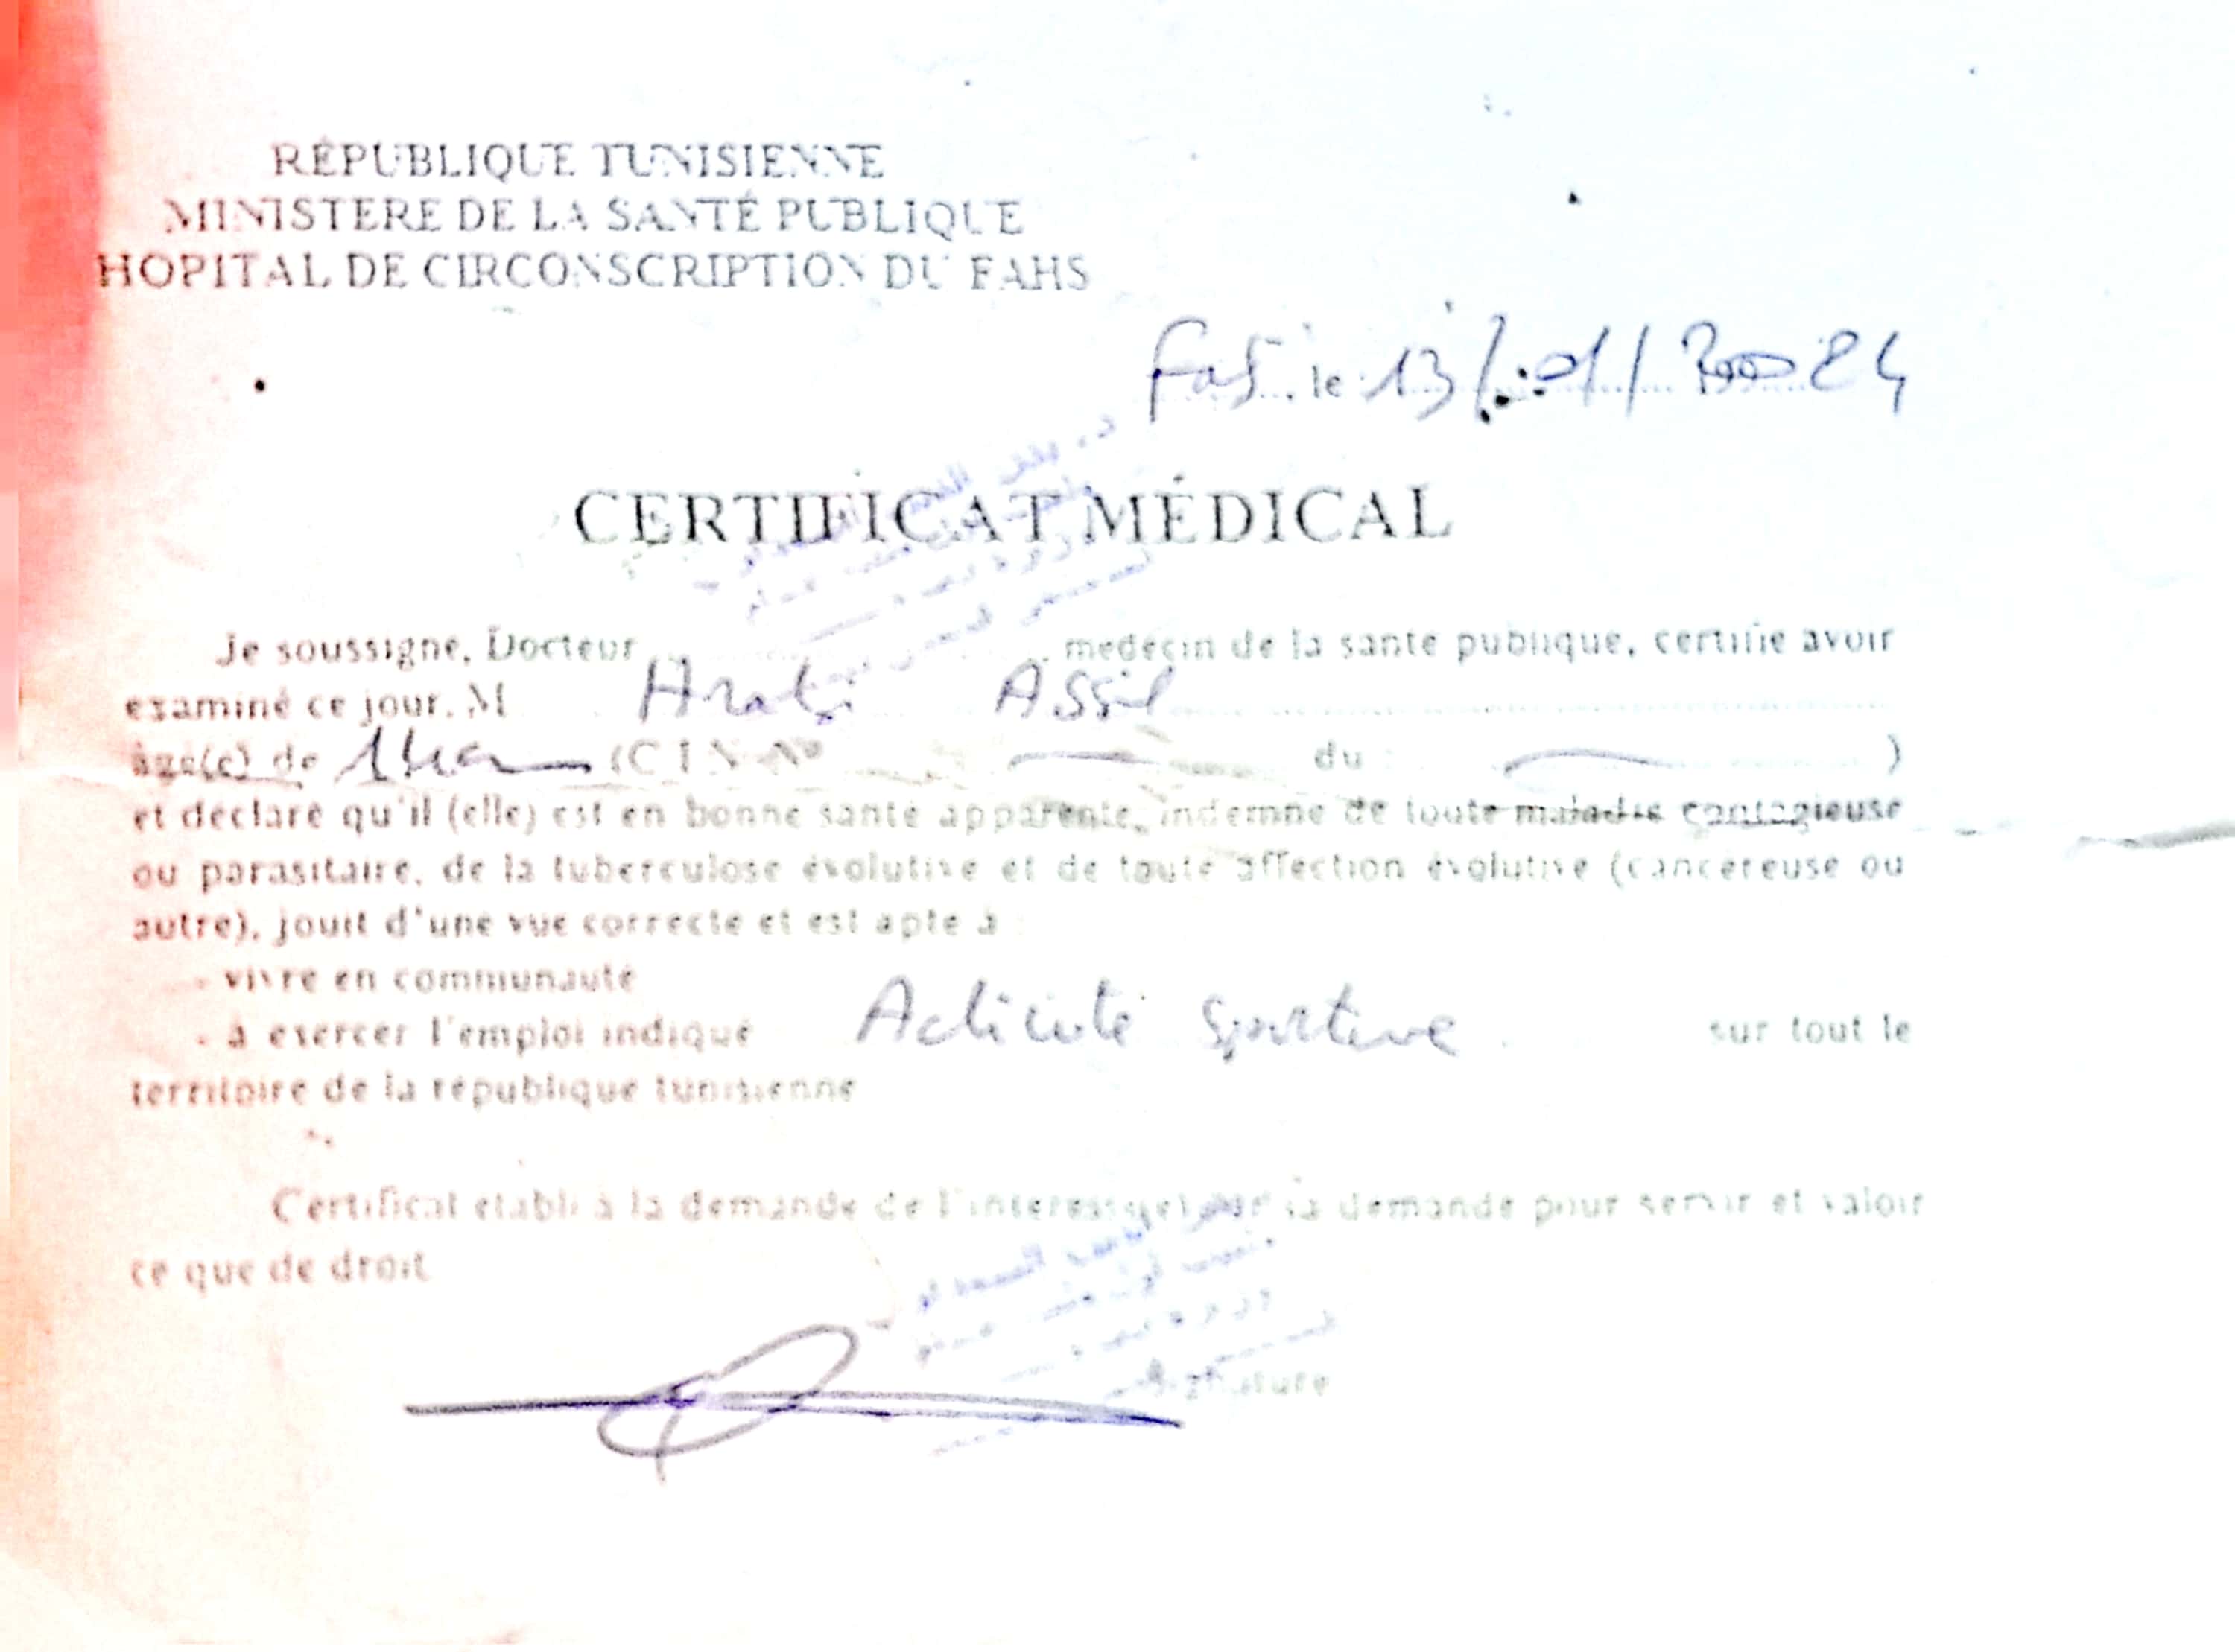 RÉPUBLIQUE TUNISIENNE
MINISTERE DE LA SANTÉ PUBLIQUE
HOPITAL DE CIRCONSCRIPTION DU FAHS
le 13/01/
CERTIFICAT MÉDICAL
Je soussigne, Docteur medecin de la sante publique, certifie avoir
examiné ce jour, M Assil
âgé(e) de (C I N N° du : )
et declare qu'il (elle) est en bonne sante apparente, indemne de toute maladie contagieuse
ou parasitaire, de la tuberculose évolutive et de toute affection évolutive (cancereuse ou
autre), jouit d'une vue correcte et est apte à :
- vivre en communauté
- à exercer l'emploi indiqué Activité Sportive sur tout le
territoire de la république tunisienne
Certificat etabli à la demande de l'interessé(e) sur sa demande pour servir et valoir
ce que de droit
Signature